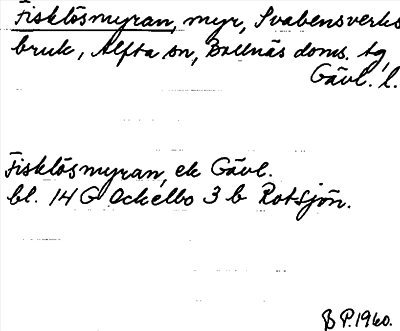 Fisklösmyran, myr, Svabensverks
bruk, Alfta sn, Bollnäs doms. tg,
Gävl. l.
Fisklösmyran, ek Gävl.
bl. 14 G Ockelbo 3 b Rotsjön.
B P. 1960.